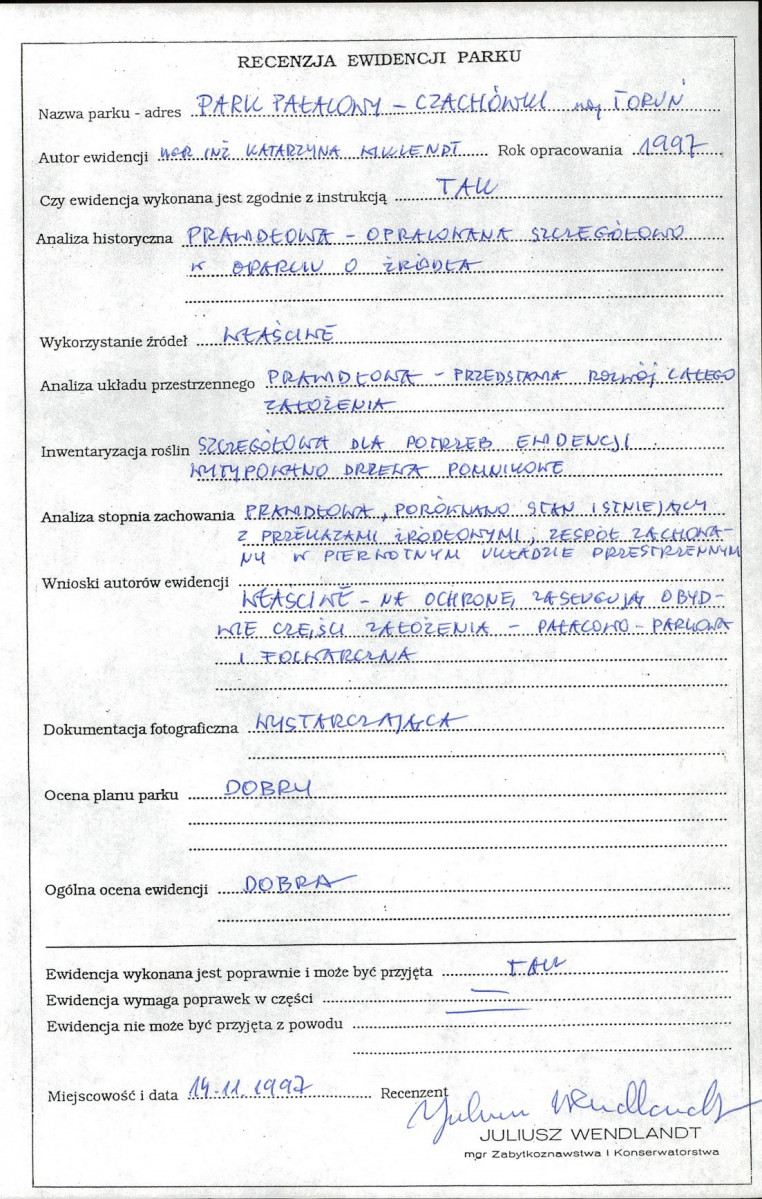 RECENZJA EWIDENCJI PARKU
Nazwa parku - adres PARK PAŁACOWY – CZACHÓWKI woj TORUŃ
Autor ewidencji MGR INŻ KATARZYNA Rok opracowania 1997
Czy ewidencja wykonana jest zgodnie z instrukcją TAK
Analiza historyczna PRAWIDŁOWA – OPRACOWANA SZCZEGÓŁOWO
W OPARCIU O ŹRÓDŁA
Wykorzystanie źródeł WŁAŚCIWE
Analiza układu przestrzennego PRAWIDŁOWA – PRZEDSTAWIA ROZWÓJ CAŁEGO
ZAŁOŻENIA
Inwentaryzacja roślin SZCZEGÓŁOWA DLA POTRZEB EWIDENCJI
WYTYPOWANO DRZEWA POMNIKOWE
Analiza stopnia zachowania PRAWIDŁOWA, PORÓWNANO STAN ISTNIEJĄCY
Z PRZEKAZAMI ŹRÓDŁOWYMI; ZESPÓŁ ZACHOWA-
NY W PIERWOTNYM UKŁADZIE PRZESTRZENNYM
Wnioski autorów ewidencji
WŁAŚCIWE – NA OCHRONĘ ZASŁUGUJĄ OBYD-
WIE CZĘŚCI ZAŁOŻENIA – PAŁACOWO-PARKOWA
I FOLWARCZNA
Dokumentacja fotograficzna WYSTARCZAJĄCA
Ocena planu parku DOBRY
Ogólna ocena ewidencji DOBRA
Ewidencja wykonana jest poprawnie i może być przyjęta TAK
Ewidencja wymaga poprawek w części —
Ewidencja nie może być przyjęta z powodu —
Miejscowość i data 14.11.1997 Recenzent Juliusz Wendlandt
JULIUSZ WENDLANDT
mgr Zabytkoznawstwa i Konserwatorstwa